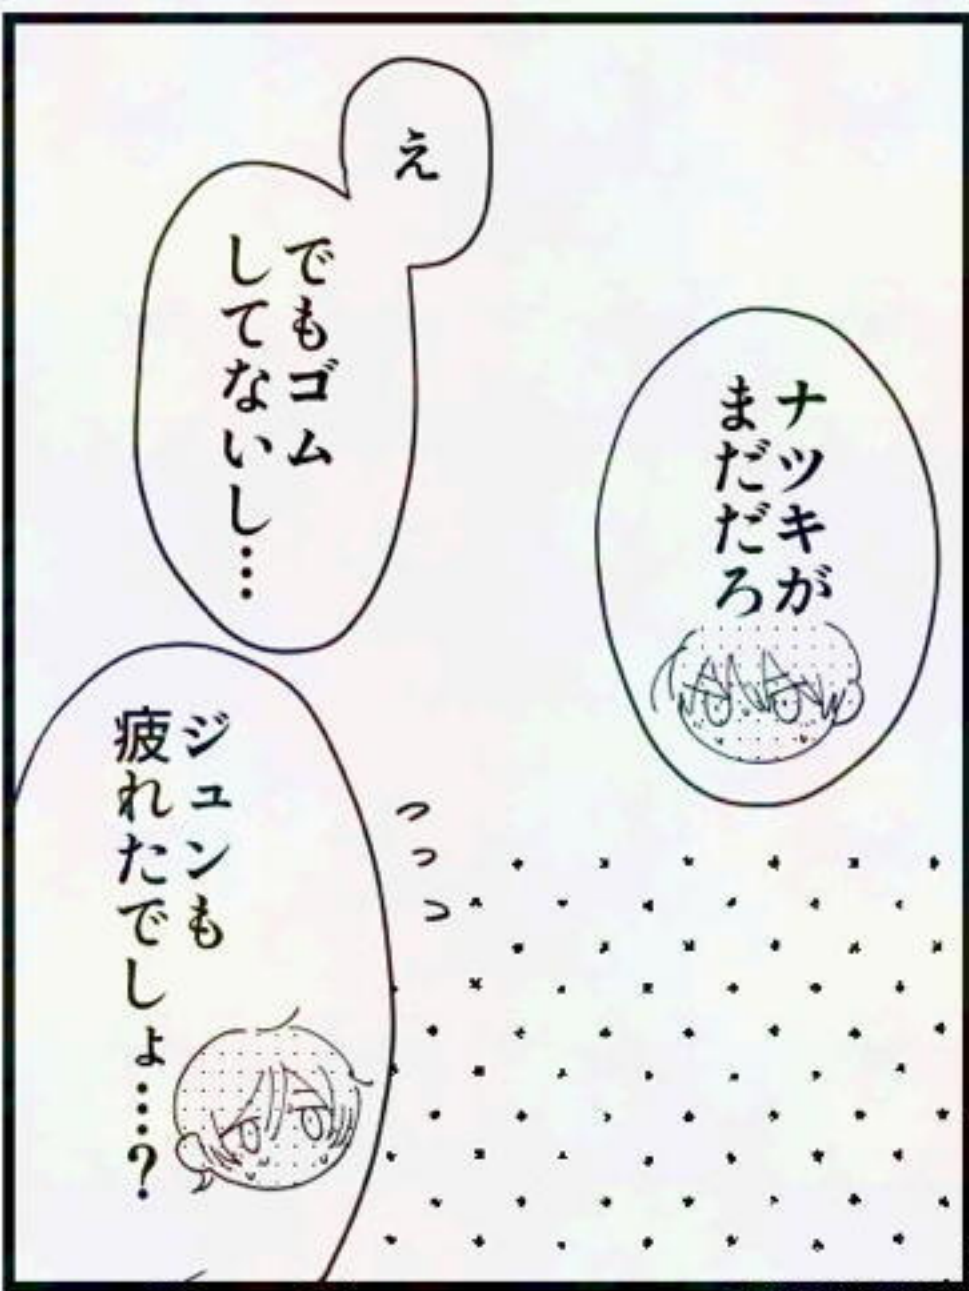 ナツキが
まだだろ
え
でもゴム
してないし…
ジュンも
疲れたでしょ……?
っっっ